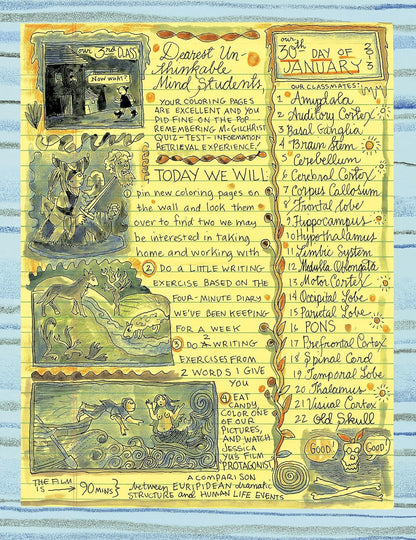 our 3RD CLASS
NOW WHAT?
Dearest Un-
thinkable
Mind Students,
YOUR COLORING PAGES
ARE EXCELLENT AND YOU
DID FINE ON THE POP
REMEMBERING MCGILCHRIST
QUIZ-TEST-INFORMATION
RETRIEVAL EXPERIENCE!
TODAY WE WILL
① pin new coloring pages on
the wall and look them
over to find two we may
be interested in taking
home and working with
② DO A LITTLE WRITING
EXERCISE BASED ON THE
FOUR-MINUTE DIARY
WE'VE BEEN KEEPING
FOR A WEEK
③ DO 2 WRITING
EXERCISES FROM
2 WORDS I GIVE
YOU
④ EAT
CANDY,
COLOR ONE
OF OUR
PICTURES,
AND WATCH
JESSICA
YU'S FILM
PROTAGONIST
THE FILM IS → 90 MINS}
A COMPARISON
between EURIPIDEAN dramatic
STRUCTURE and HUMAN LIFE EVENTS
our
30th DAY OF
JANUARY
2013
OUR CLASSMATES:
1 Amygdala
2 Auditory Cortex
3 Basal Ganglia
4 Brain Stem
5 Cerebellum
6 Cerebral Cortex
7 Corpus Callosum
8 Frontal Lobe
9 Hippocampus
10 Hypothalamus
11 Limbic System
12 Medulla Oblongata
13 Motor Cortex
14 Occipital Lobe
15 Parietal Lobe
16 PONS
17 Prefrontal Cortex
18 Spinal Cord
19 Temporal Lobe
20 Thalamus
21 Visual Cortex
22 Old Skull
GOOD!
GOOD!